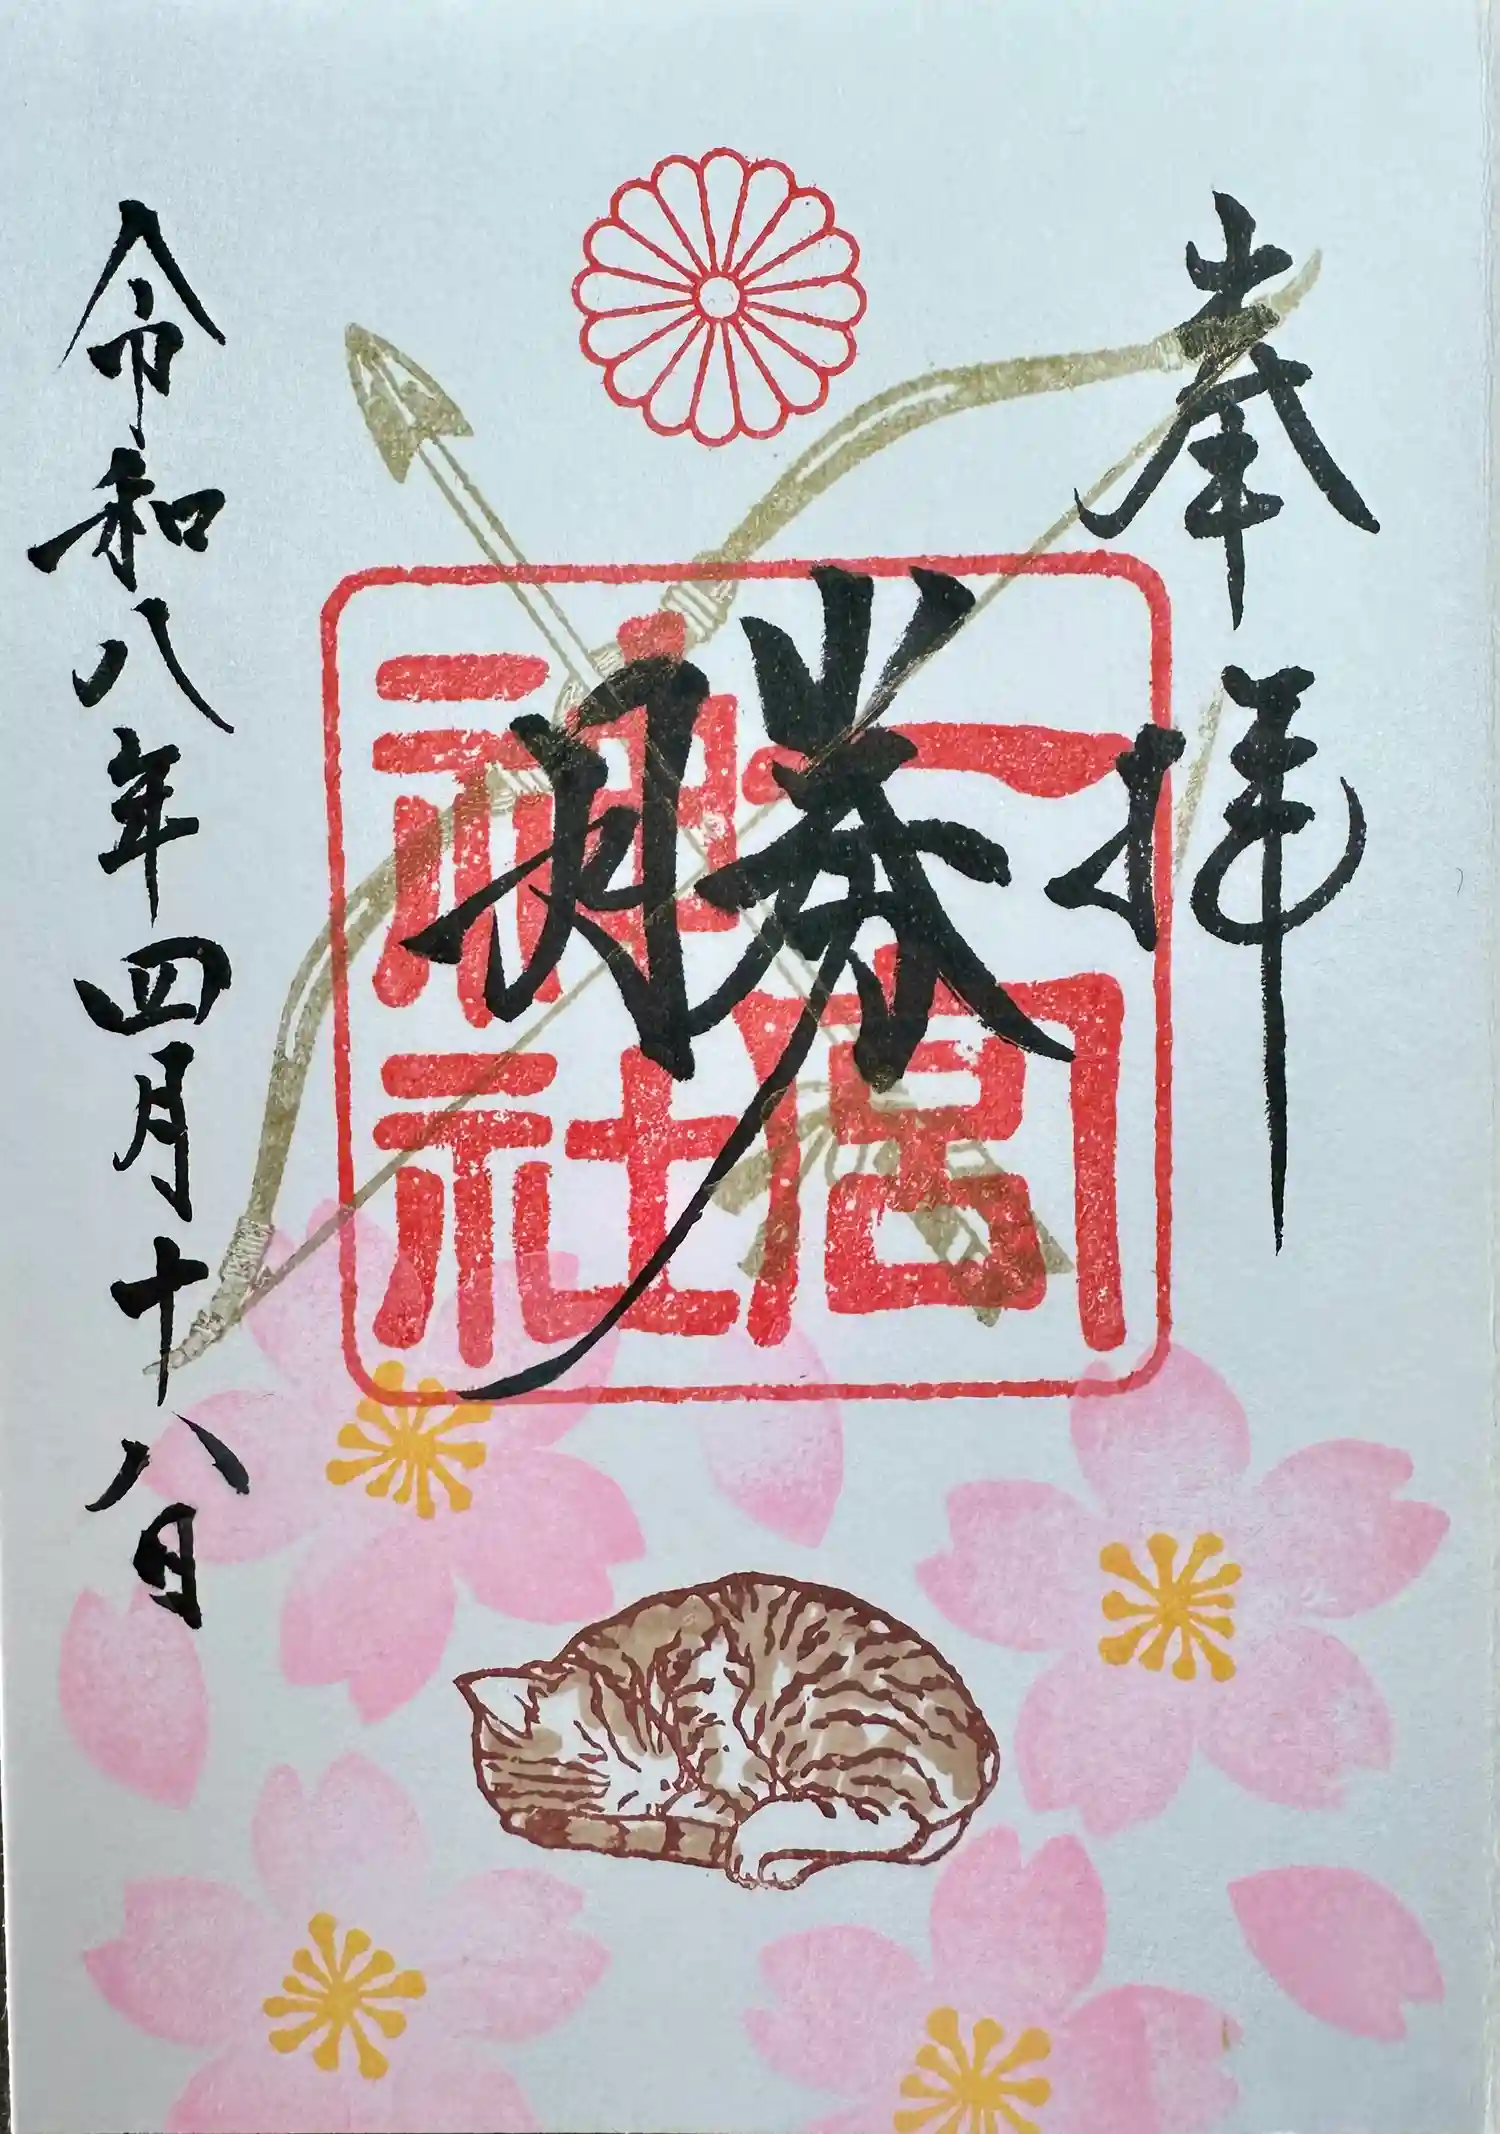 奉拝
勝
一宮
神社
令和八年四月十八日